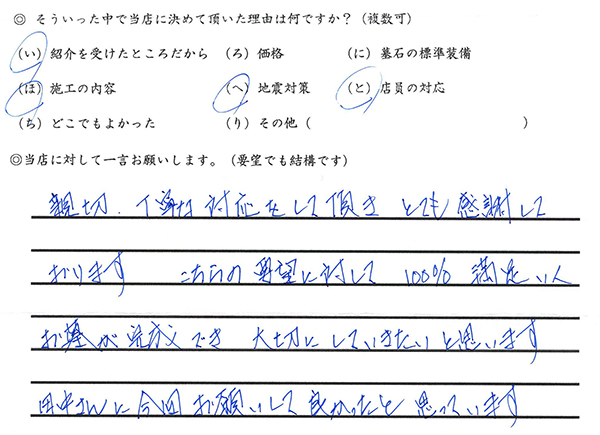 ◎ そういった中で当店に決めて頂いた理由は何ですか?(複数可)
(い)紹介を受けたところだから (ろ)価格 (に)墓石の標準装備
(ほ)施工の内容 (へ)地震対策 (と)店員の対応
(ち)どこでもよかった (り)その他( )
◎当店に対して一言お願いします。(要望でも結構です)
親切、丁寧な対応をして頂き とても感謝して
おります こちらの要望に対して 100% 満足いく
お墓が完成でき 大切にしていきたいと思います
田中さんに今回お願いして良かったと思っています